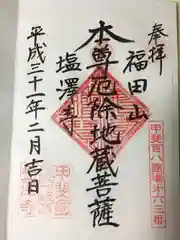 奉拝
福田山
甲斐百八霊場第六三番
本尊厄除地蔵菩薩
塩澤寺
平成三十一年二月吉日